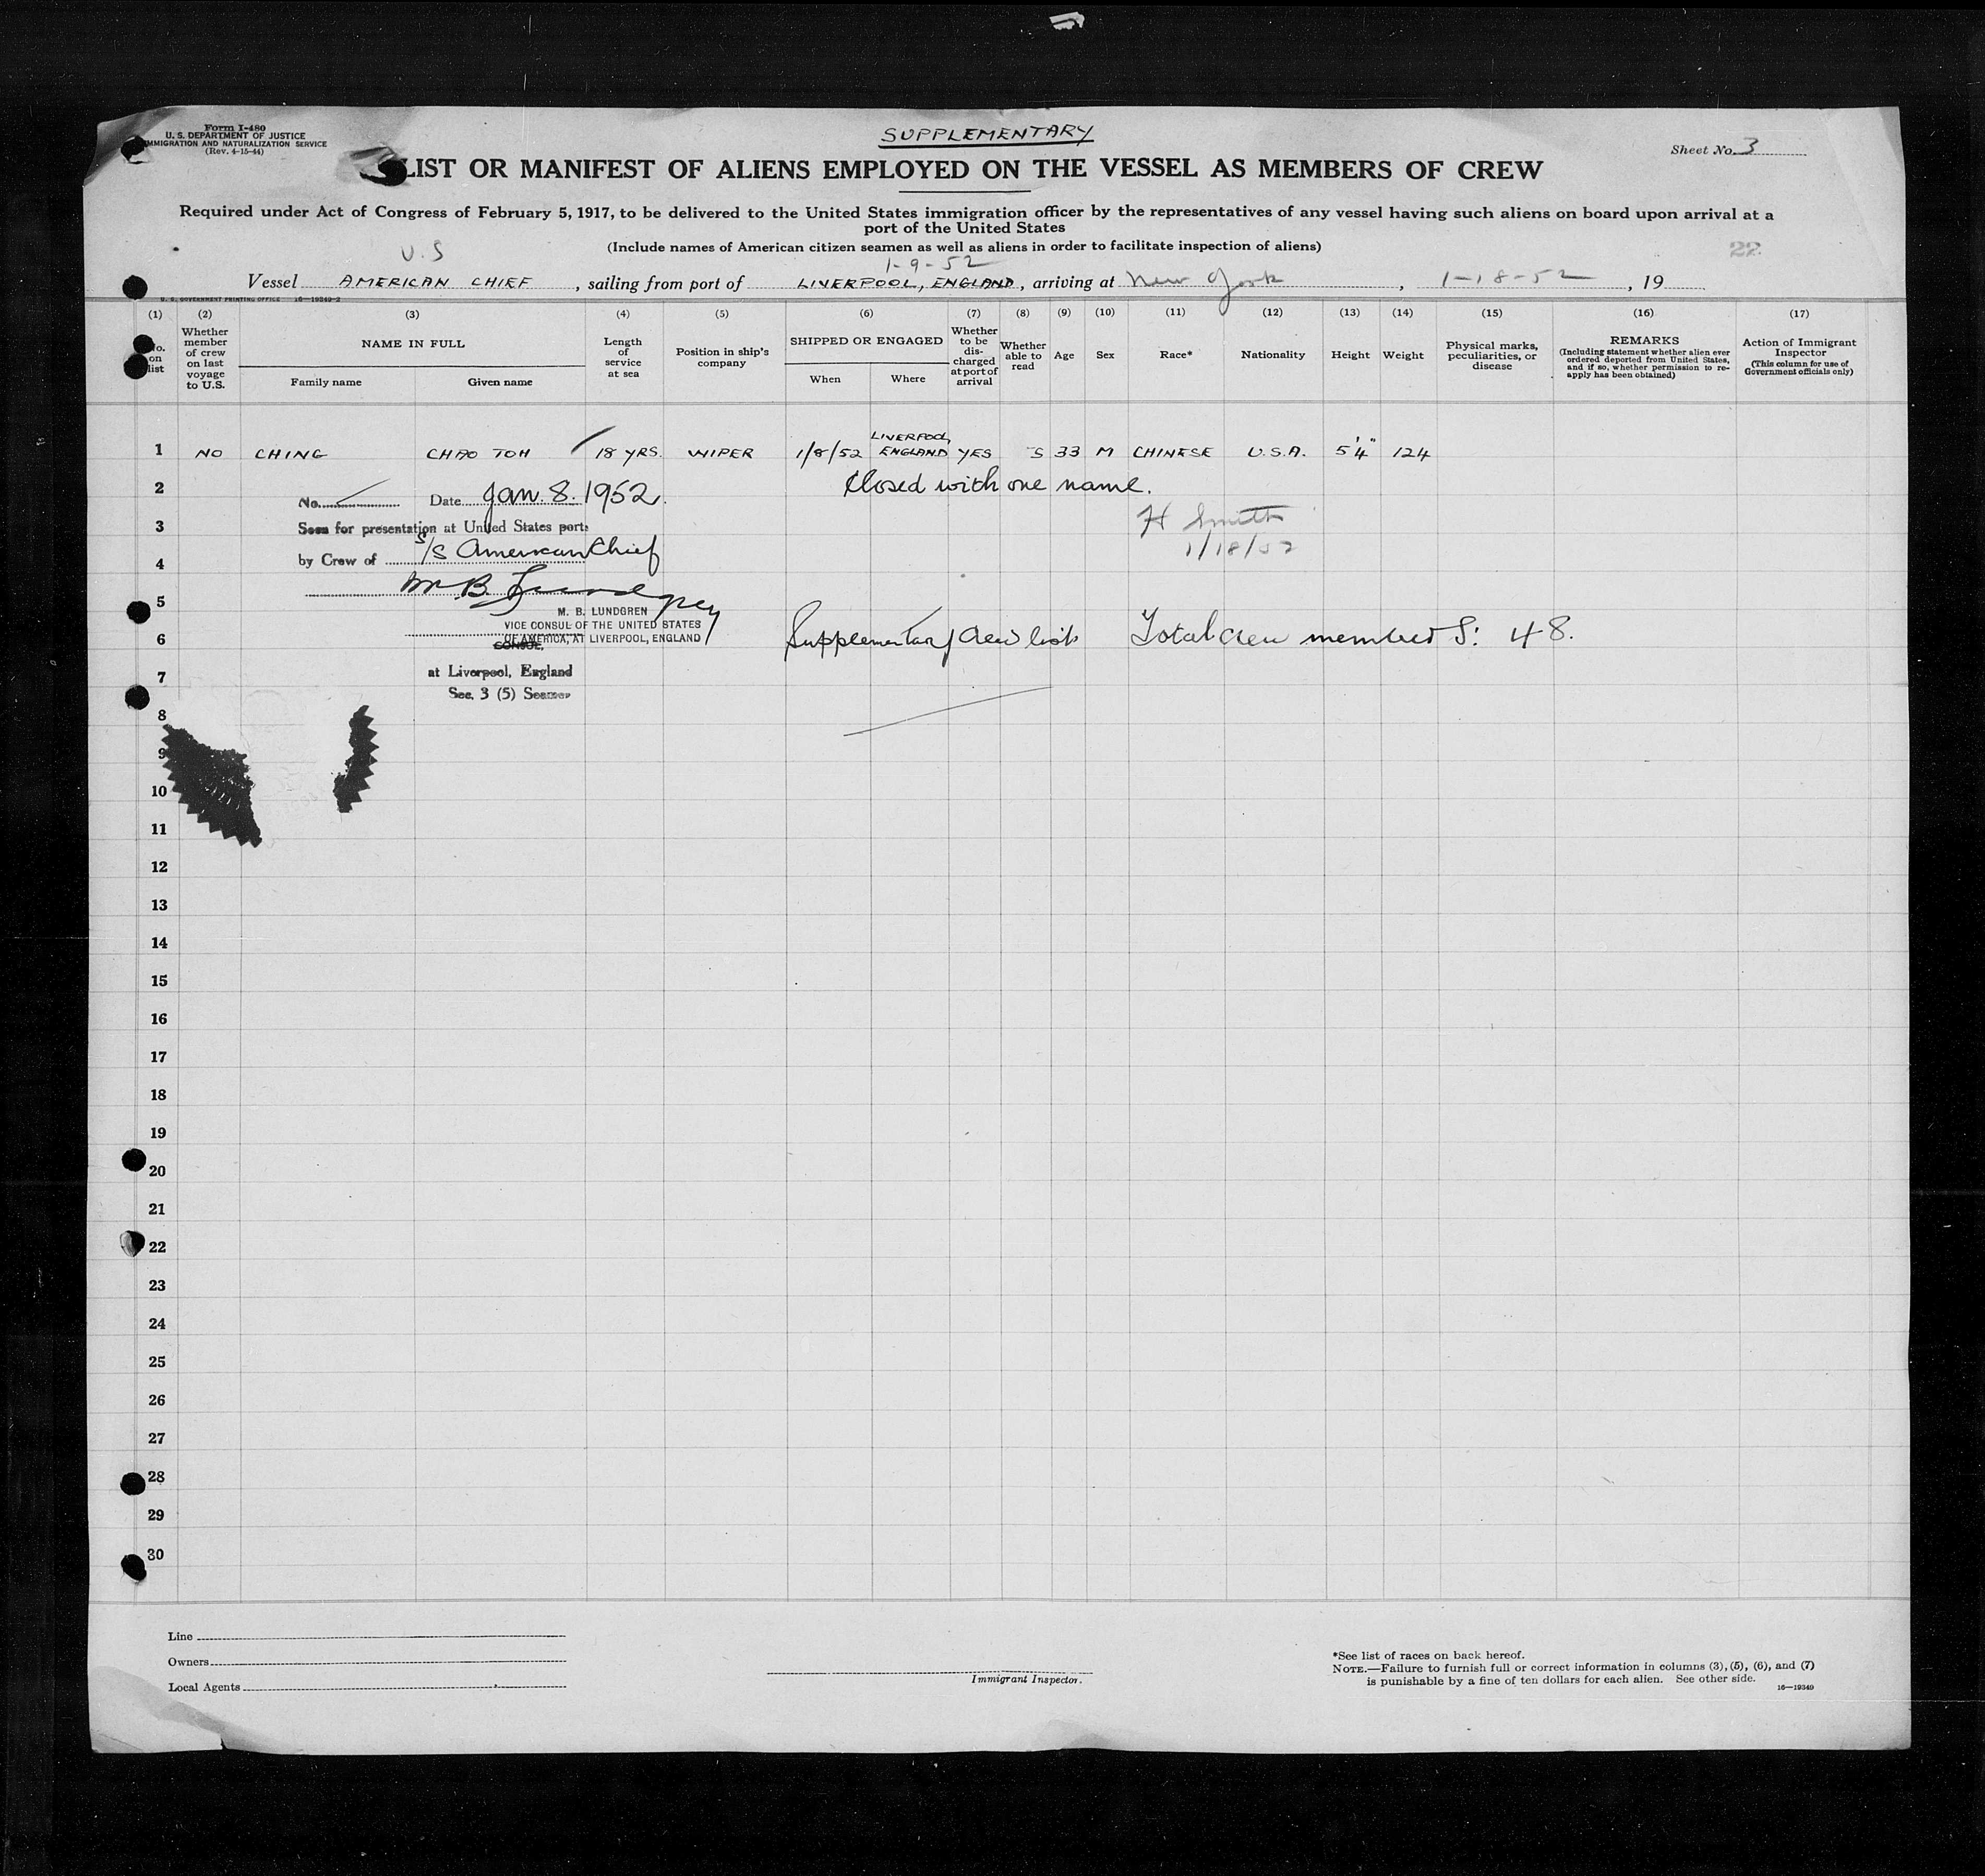 Form I-480
U. S. DEPARTMENT OF JUSTICE
IMMIGRATION AND NATURALIZATION SERVICE
(Rev. 4-15-44)
SUPPLEMENTARY
Sheet No. 3
LIST OR MANIFEST OF ALIENS EMPLOYED ON THE VESSEL AS MEMBERS OF CREW
Required under Act of Congress of February 5, 1917, to be delivered to the United States immigration officer by the representatives of any vessel having such aliens on board upon arrival at a
port of the United States
(Include names of American citizen seamen as well as aliens in order to facilitate inspection of aliens)
22
U.S
1-9-52
Vessel AMERICAN CHIEF, sailing from port of LIVERPOOL, ENGLAND, arriving at New York, 1-18-52, 19
U. S. GOVERNMENT PRINTING OFFICE 16-19349-2
(1) (2) (3) (4) (5) (6) (7) (8) (9) (10) (11) (12) (13) (14) (15) (16) (17)
No. on list
Whether member of crew on last voyage to U.S.
NAME IN FULL
Family name Given name
Length of service at sea
Position in ship's company
SHIPPED OR ENGAGED
When Where
Whether to be discharged at port of arrival
Whether able to read
Age
Sex
Race*
Nationality
Height
Weight
Physical marks, peculiarities, or disease
REMARKS
(Including statement whether alien ever ordered deported from United States, and if so, whether permission to re-apply has been obtained)
Action of Immigrant Inspector
(This column for use of Government officials only)
1 NO CHING CHAO TOH 18 YRS. WIPER 1/8/52 LIVERPOOL, ENGLAND YES S 33 M CHINESE U.S.A. 5'4" 124
2 Closed with one name.
No. Date Jan. 8. 1952.
3
Seen for presentation at United States ports
H Smith
1/18/52
4
by Crew of S/S American Chief
M. B. Lundgren
5
M. B. LUNDGREN
VICE CONSUL OF THE UNITED STATES
OF AMERICA, AT LIVERPOOL, ENGLAND
6 Supplementary Crew list Total crew members: 48.
CONSUL,
at Liverpool, England
7
Sec. 3 (5) Seamen
8
9
10
11
12
13
14
15
16
17
18
19
20
21
22
23
24
25
26
27
28
29
30
Line
Owners
Local Agents
Immigrant Inspector.
*See list of races on back hereof.
NOTE.—Failure to furnish full or correct information in columns (3), (5), (6), and (7)
is punishable by a fine of ten dollars for each alien. See other side.
16—19349